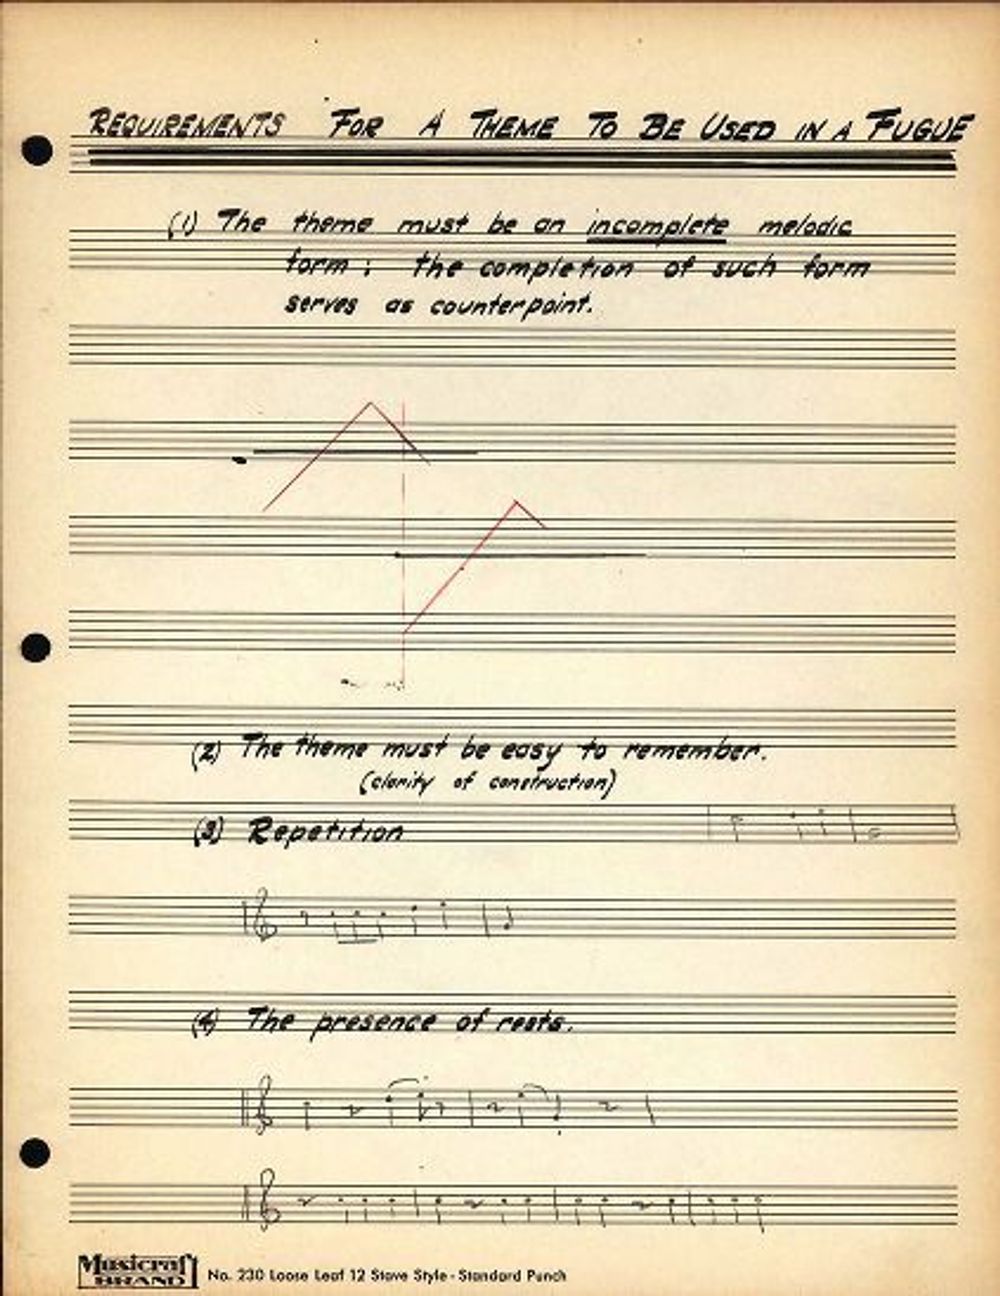 REQUIREMENTS FOR A THEME TO BE USED IN A FUGUE
(1) The theme must be an incomplete melodic
form ; the completion of such form
serves as counterpoint.
(2) The theme must be easy to remember.
(clarity of construction)
(3) Repetition
(4) The presence of rests.
Musicraft
BRAND
No. 230 Loose Leaf 12 Stave Style - Standard Punch